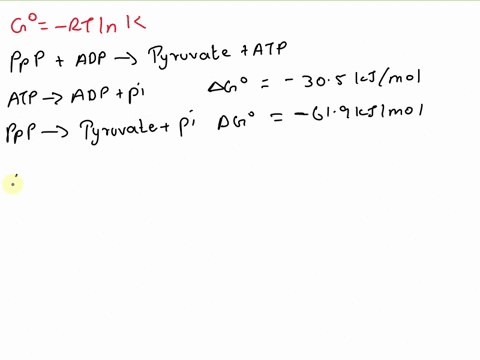 G° = -RT ln K
PpP + ADP → Pyruvate + ATP
ATP → ADP + pi ΔG° = -30.5 kJ/mol
PpP → Pyruvate + pi ΔG° = -61.9 kJ/mol